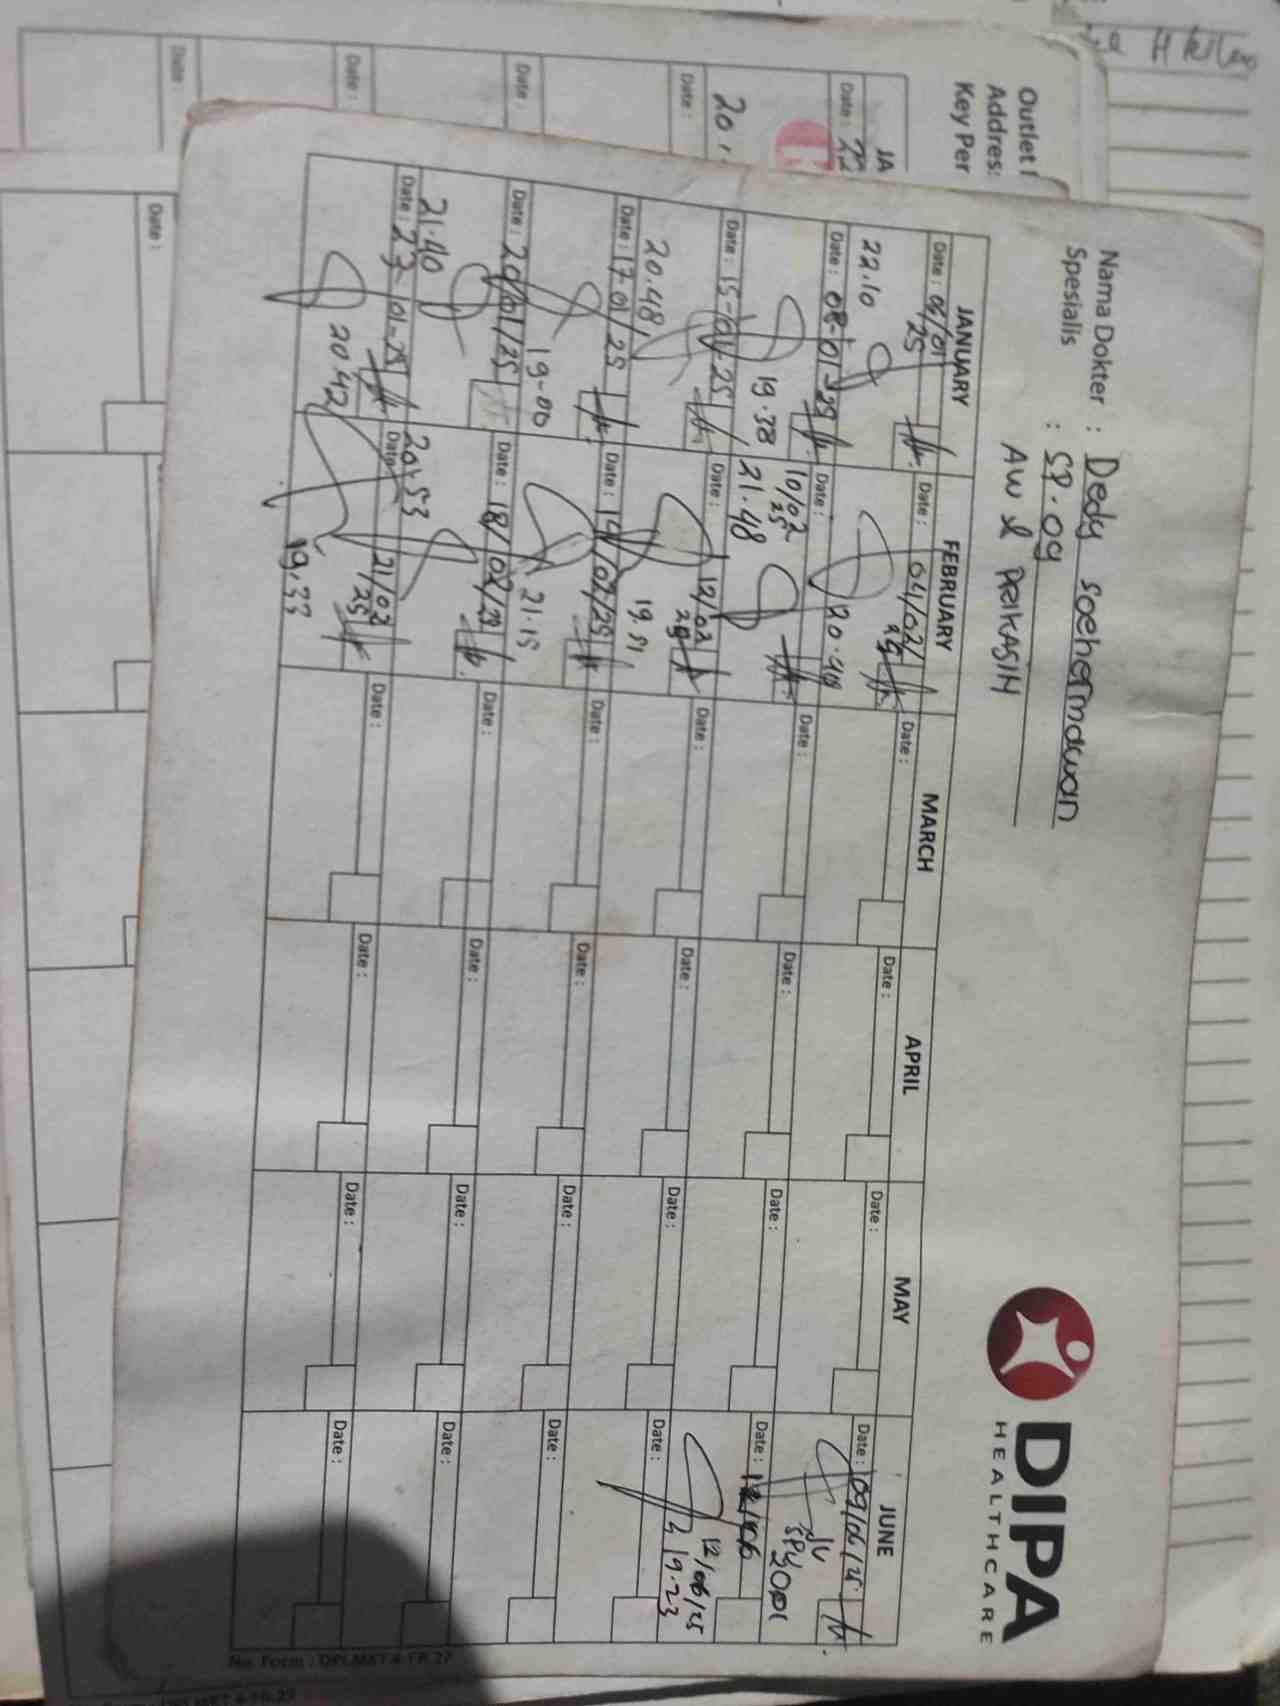 DIPA
HEALTHCARE
Nama Dokter : Dedy Soehermawan
Spesialis : SP.OG
AW 2 PRIKASIH
JANUARY FEBRUARY MARCH APRIL MAY JUNE
Date : 06/01/25 Date : 04/02/25 Date : Date : Date : Date : 09/06/25
22.10 20.40
Date : 08-01-25 Date : 10/02/25 Date : Date : Date : Date : 12/06
19.38 21.48 12/06/25
19.23
Date : 15-01-25 Date : 12/02/25 Date : Date : Date : Date :
20.48 19.51
Date : 17/01/25 Date : 14/02/25 Date : Date : Date : Date :
19-00 21.15
Date : 20/01/25 Date : 18/02/25 Date : Date : Date : Date :
21.40 20.53
Date : 23-01-25 Date : 21/02/25 Date : Date : Date : Date :
20.42 19.33
No. Form : DPI.MKT-4-FR.27
Outlet
Address:
Key Per
JA
Date :
Date :
Date :
Date :
Date :
Date :